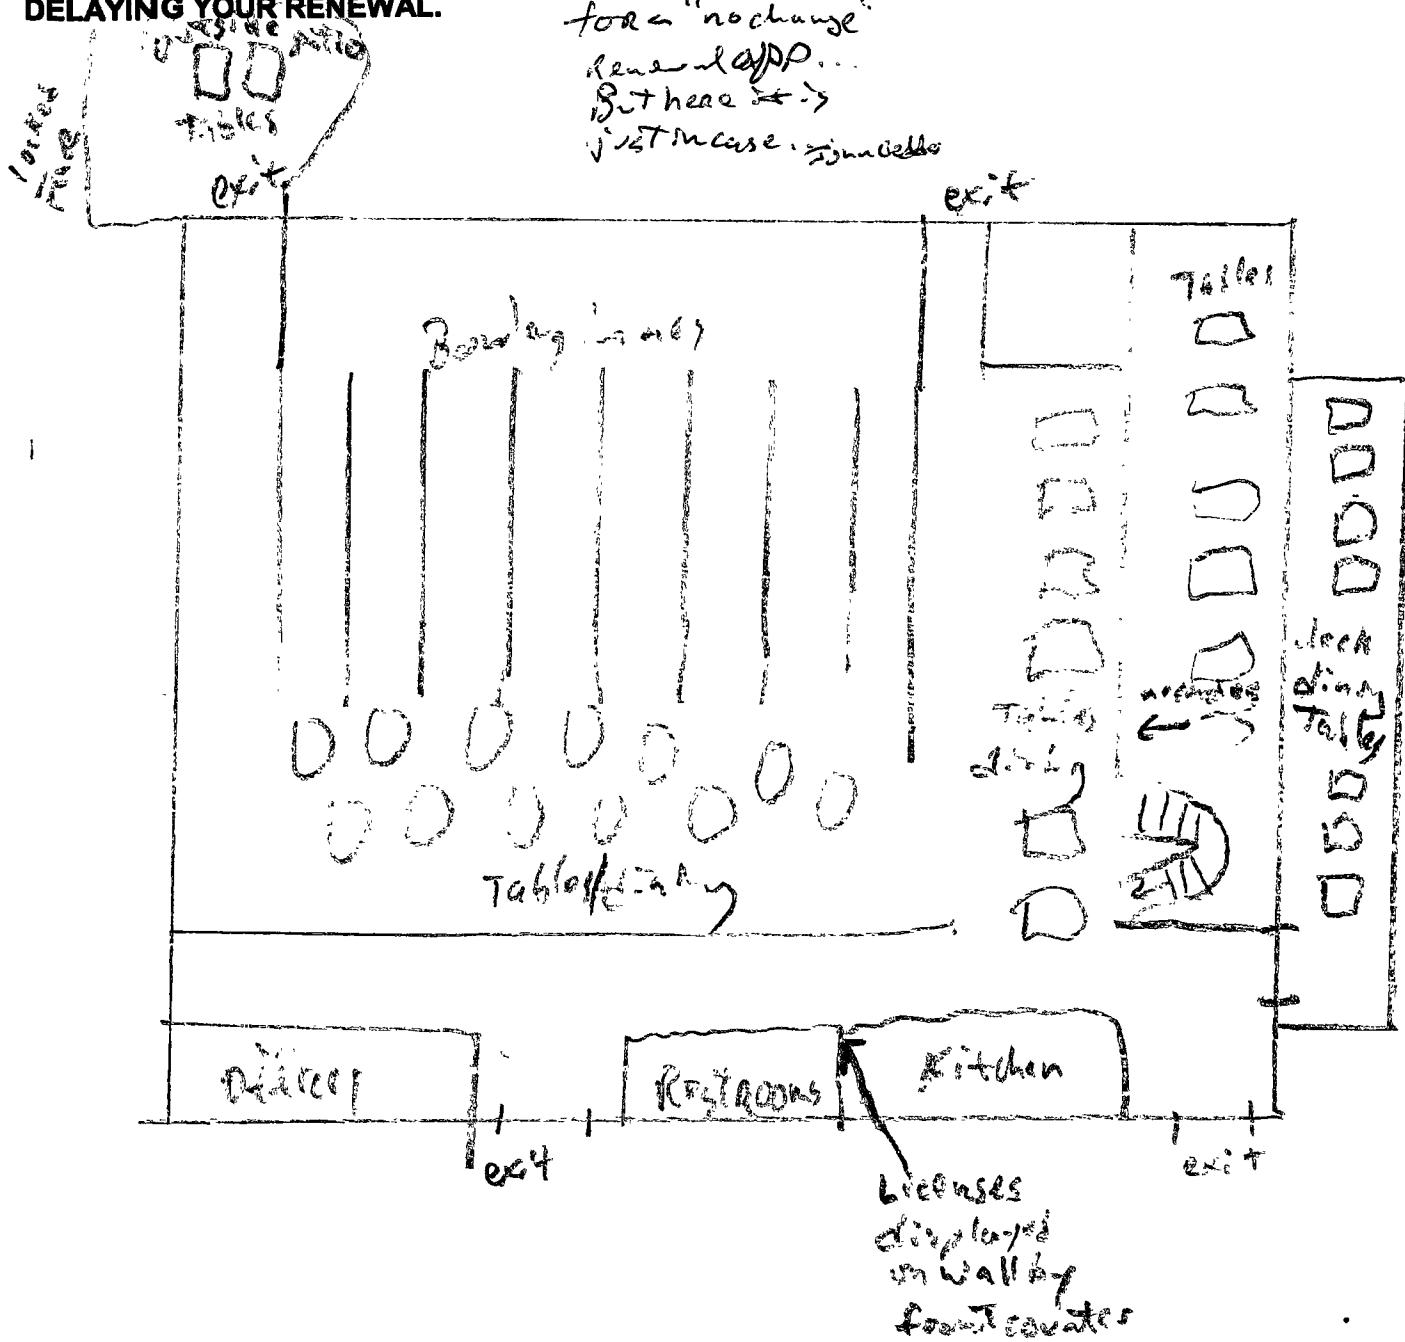 DELAYING YOUR RENEWAL.
for a "no change"
Renewal app...
But here it is
just in case.
outside patio
tables
locked
fence
exit
exit
Tables
Bowling lanes
deck
dining
Tables
Tables
dining
Tables/dining
Restrooms
Kitchen
exit
exit
Licenses
displayed
on wall by
front counter